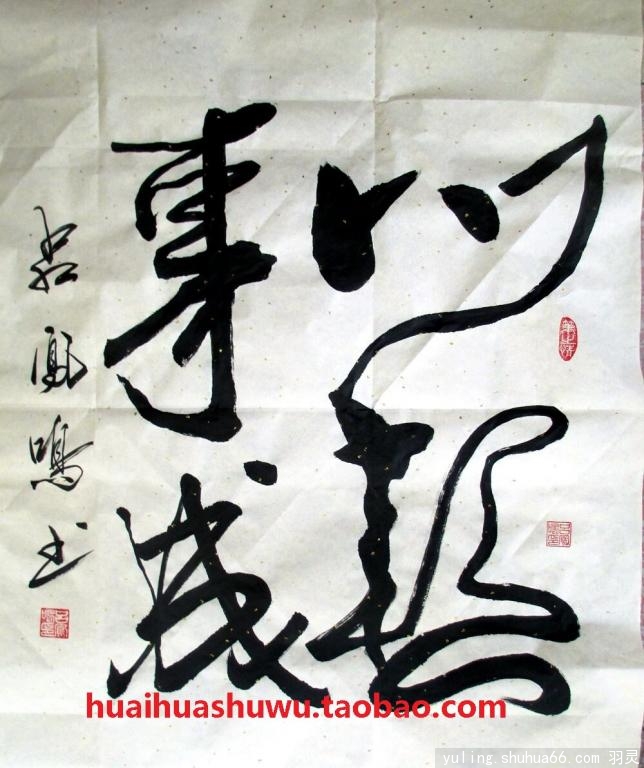 心想
事成
吕凤鸣书
huaihuashuwu.taobao.com
yuling.shuhua66.com 羽灵